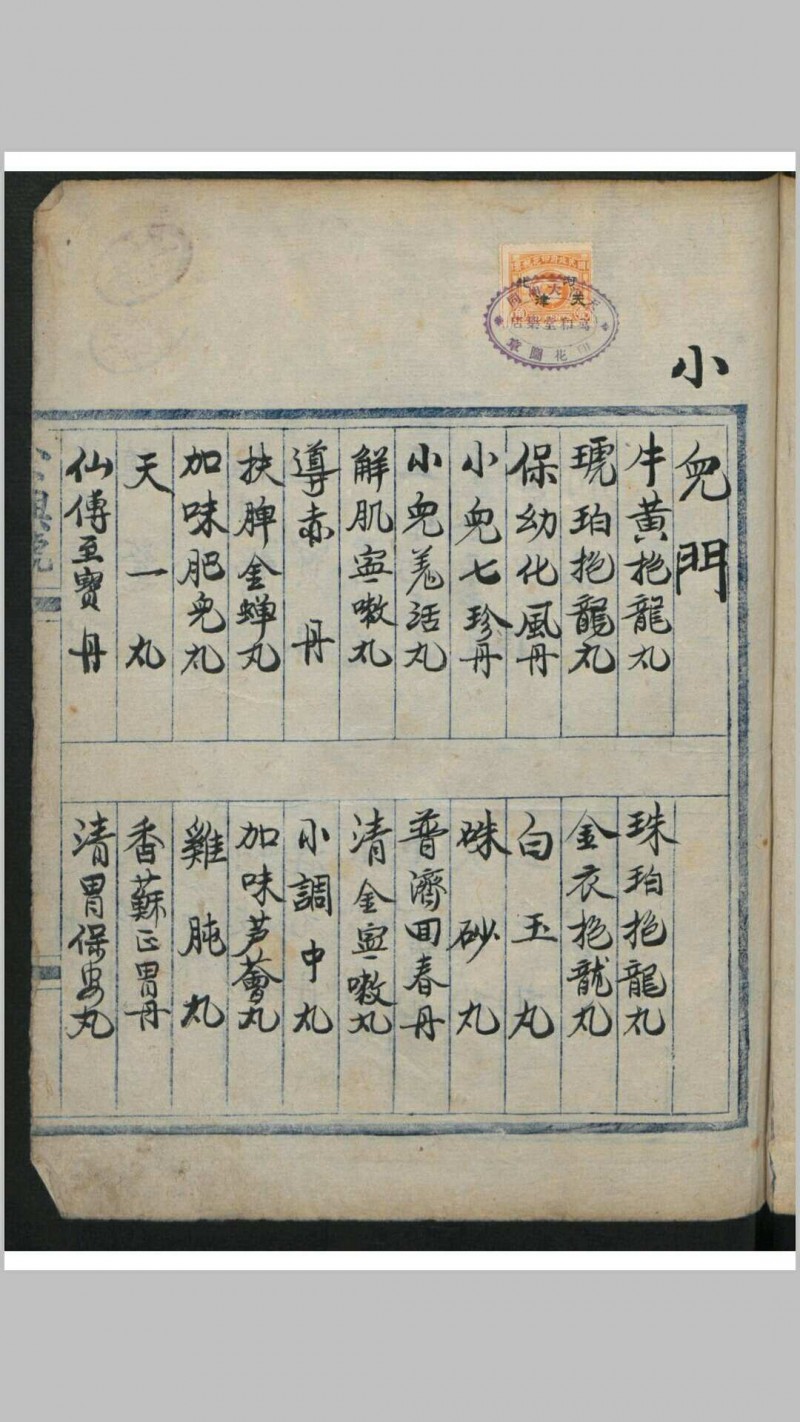 小兒門
牛黃抱龍丸
珠珀抱龍丸
琥珀抱龍丸
金衣抱龍丸
保幼化風丹
白玉丸
小兒七珍丹
硃砂丸
小兒羗活丸
普濟回春丹
解肌寧嗽丸
清金寧嗽丸
導赤丹
小調中丸
扶脾金蟬丸
加味芦薈丸
加味肥兒丸
雞肫丸
天一丸
香蘇正胃丹
仙傳至寶丹
清胃保安丸
河北
天津